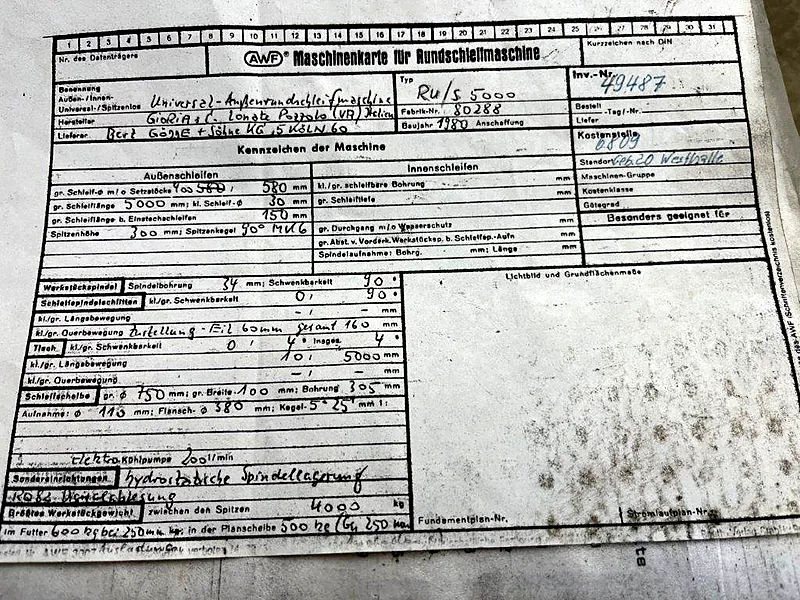 1 2 3 4 5 6 7 8 9 10 11 12 13 14 15 16 17 18 19 20 21 22 23 24 25 26 27 28 29 30 31
Nr. des Datenträgers
AWF® Maschinenkarte für Rundschleifmaschine
Kurzzeichen nach DIN
Benennung
Außen-/Innen-
Universal-/Spitzenlos Universal-Außenrundschleifmaschine
Hersteller GIORIA s.C. Lonate Pozzolo (VA) Italien
Lieferer Bert Gögge + Söhne KG, 5 KÖLN 60
Typ RU/S 5000
Fabrik-Nr. 80288
Baujahr 1980 Anschaffung
Inv.-Nr. 49487
Bestell
Liefer -Tag/-Nr.
Kostenstelle 6809
Standort Geb. 20 Westhalle
Maschinen-Gruppe
Kostenklasse
Gütegrad
Besonders geeignet für
Kennzeichen der Maschine
Außenschleifen
gr. Schleif-Ø m/o Setzstöcke 400 580 / 580 mm
gr. Schleiflänge 5000 mm; kl. Schleif-Ø 30 mm
gr. Schleiflänge b. Einstechschleifen 150 mm
Spitzenhöhe 300 mm; Spitzenkegel 90° MK6
Innenschleifen
kl./gr. schleifbare Bohrung mm
gr. Schleiftiefe mm
gr. Durchgang m/o Wasserschutz mm
gr. Abst. v. Vorderk. Werkstücksp. b. Schleifsp.-Aufn mm
Spindelaufnahme: Bohrg. mm; Länge mm
Werkstückspindel Spindelbohrung 34 mm; Schwenkbarkeit 90 °
Schleifspindelschlitten kl./gr. Schwenkbarkeit 0 / 90 °
kl./gr. Längsbewegung - / - mm
kl./gr. Querbewegung Zustellung - Eil 60mm gesamt 160 mm
Tisch kl./gr. Schwenkbarkeit 0 / 4° Insges. 4 °
kl./gr. Längsbewegung 10 / 5000 mm
kl./gr. Querbewegung - / - mm
Schleifscheibe gr. Ø 750 mm; gr. Breite 100 mm; Bohrung 305 mm
Aufnahme: Ø 110 mm; Flansch-Ø 380 mm; Kegel 5° 25' mm 1:
Elektro Kühlpumpe 200 l/min
Sondereinrichtungen hydrostatische Spindellagerung
Größtes Werkstückgewicht zwischen den Spitzen 4000 kg
im Futter 600 kg bei 250 mm kg; in der Planscheibe 500 kg 250
Ausladung
Lichtbild und Grundflächenmaße
Fundamentplan-Nr.
Stromlaufplan-Nr.